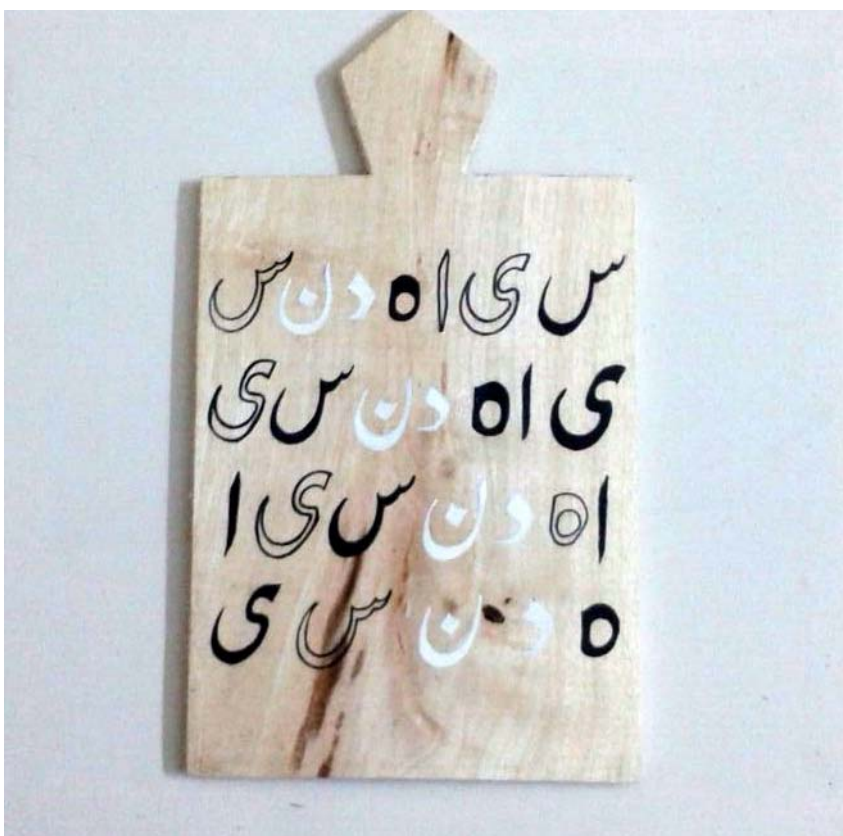 س ی ا ه د ن س
ی ا ه د ن س ی
ا ه د ن س ی ا
ه د ن س ی